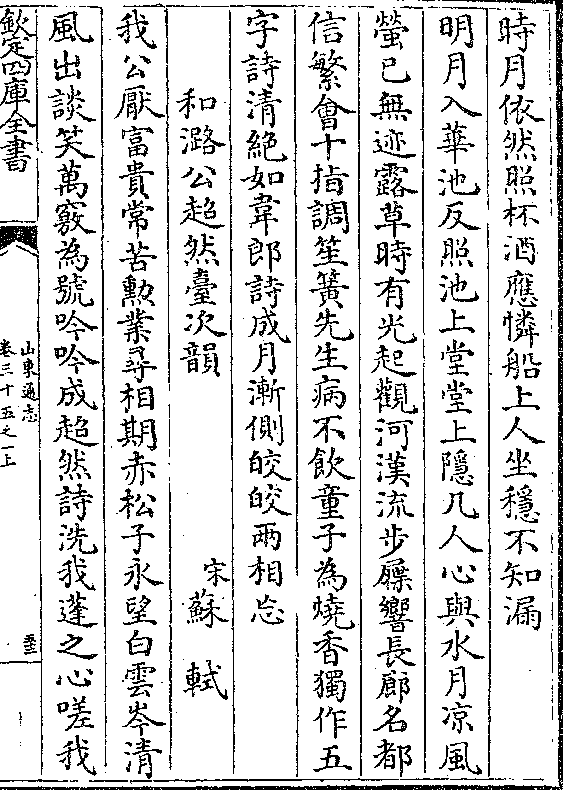 時月依然照杯酒應憐船上人坐穩不知漏
明月入華池反照池上堂堂上隱几人心與水月凉風
螢已無迹露草時有光起觀河漢流步屧響長廊名都
信繁會十指調笙簧先生病不飲童子為燒香獨作五
字詩清絶如韋郎詩成月漸側皎皎兩相忘
和潞公超然臺次韻 宋蘇軾
我公厭富貴常苦勲業尋相期赤松子永望白雲岑清
風出談笑萬竅為號吟吟成超然詩洗我蓬之心嗟我
欽定四庫全書
山東通志
卷三十五之一上